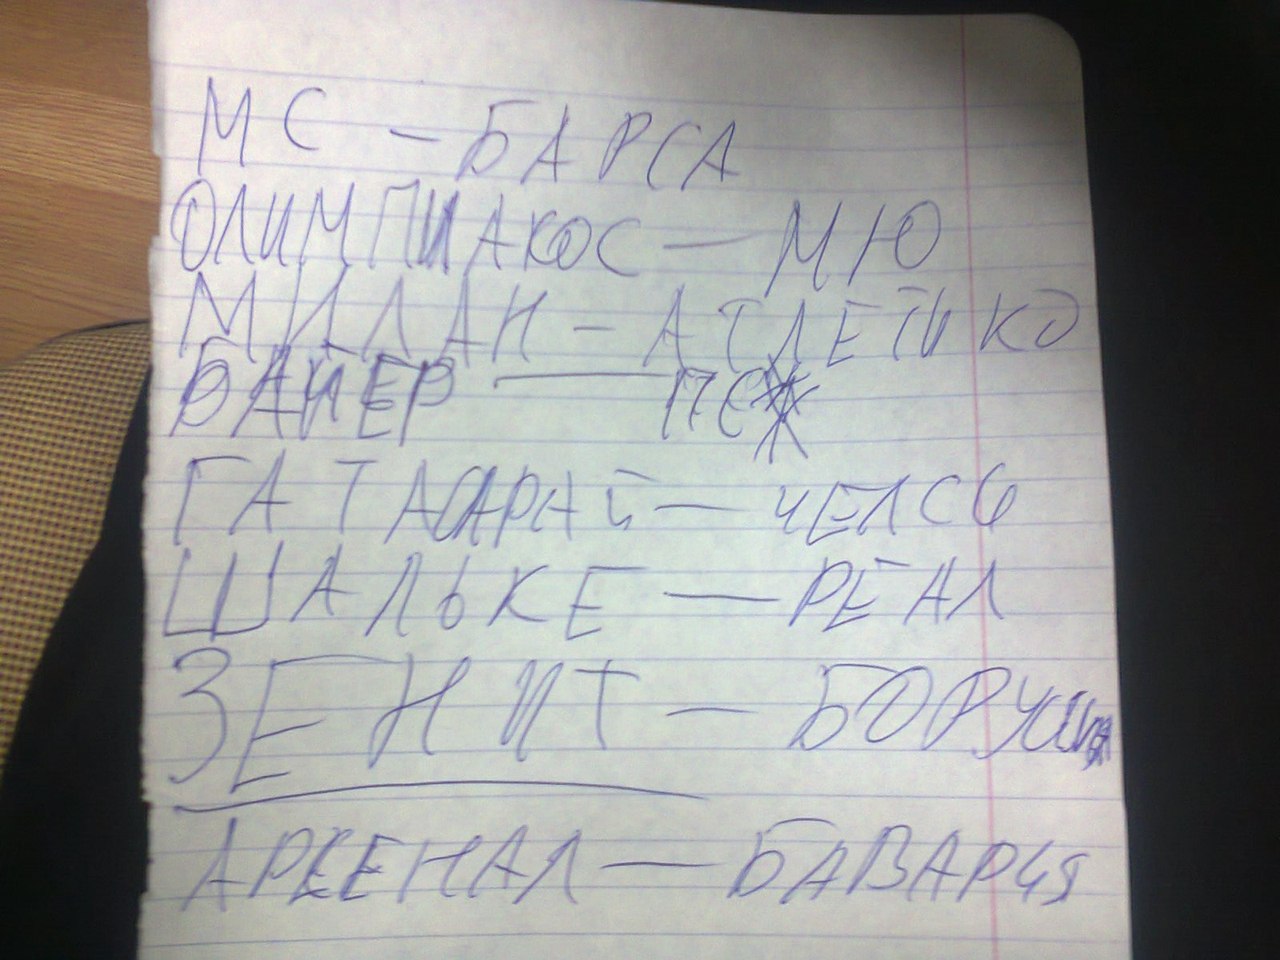 МС - БАРСА
ОЛИМПИАКОС - МЮ
МИЛАН - АТЛЕТИКО
БАЙЕР - ПСЖ
ГАТАСАРАЙ - ЧЕЛСИ
ШАЛЬКЕ - РЕАЛ
ЗЕНИТ - БОРУССИЯ
АРСЕНАЛ - БАВАРИЯ